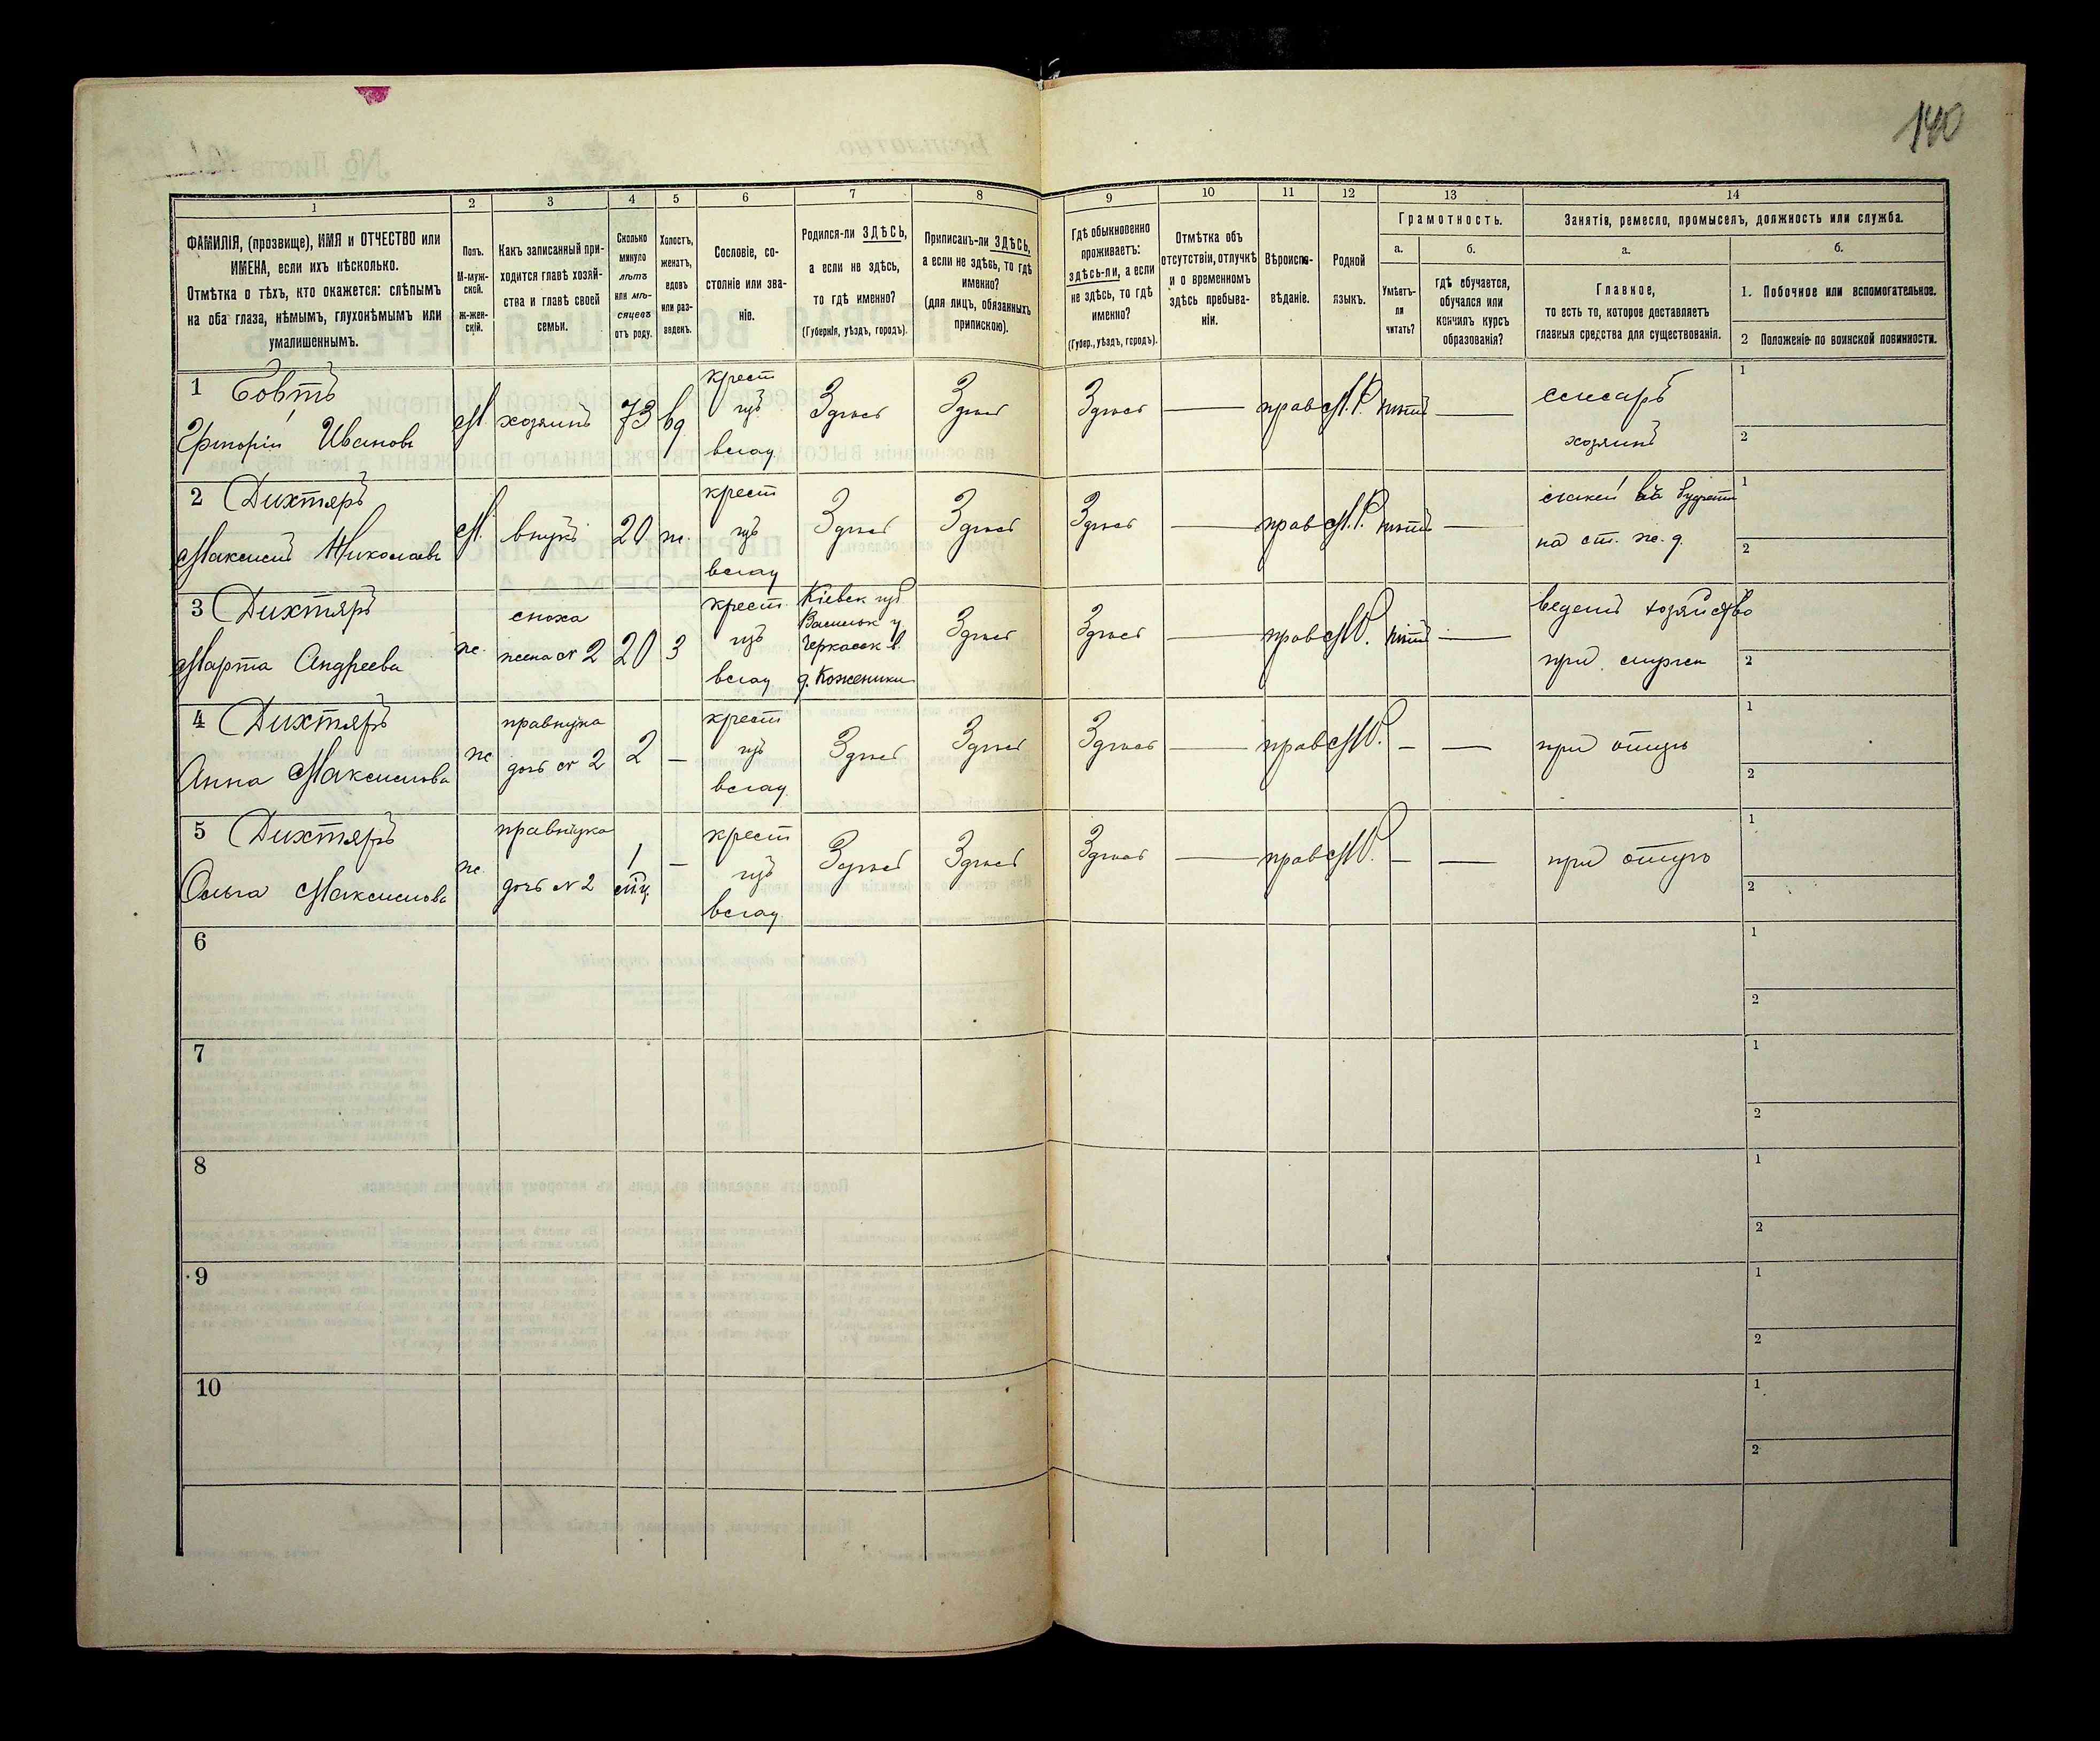 140
1
ФАМИЛІЯ, (прозвище), ИМЯ и ОТЧЕСТВО или
ИМЕНА, если ихъ нѣсколько.
Отмѣтка о тѣхъ, кто окажется: слѣпымъ
на оба глаза, нѣмымъ, глухонѣмымъ или
умалишеннымъ.
2
Полъ.
М-муж-
ской.
ж-жен-
скій.
3
Какъ записанный при-
ходится главѣ хозяй-
ства и главѣ своей
семьи.
4
Сколько
минуло
лѣтъ
или мѣ-
сяцевъ
отъ роду.
5
Холостъ,
женатъ,
вдовъ
или раз-
веденъ.
6
Сословіе, со-
стояніе или зва-
ніе.
7
Родился-ли ЗДѢСЬ,
а если не здѣсь,
то гдѣ именно?
(Губернія, уѣздъ, городъ).
8
Приписанъ-ли ЗДѢСЬ,
а если не здѣсь, то гдѣ
именно?
(для лицъ, обязанныхъ
припискою).
9
Гдѣ обыкновенно
проживаетъ:
здѣсь-ли, а если
не здѣсь, то гдѣ
именно?
(Губер., уѣздъ, городъ).
10
Отмѣтка объ
отсутствіи, отлучкѣ
и о временномъ
здѣсь пребыва-
ніи.
11
Вѣроиспо-
вѣданіе.
12
Родной
языкъ.
13
Грамотность.
а.
Умѣетъ-
ли
читать?
б.
гдѣ обучается,
обучался или
кончилъ курсъ
образованія?
14
Занятія, ремесло, промыселъ, должность или служба.
а.
Главное,
то есть то, которое доставляетъ
главныя средства для существованія.
б.
1. Побочное или вспомогательное.
2 Положеніе по воинской повинности.
1 Товтъ
Григорій Ивановъ
М. хозяинъ 73 вд
крест
изъ
влад.
Здѣсь Здѣсь Здѣсь — прав М.Р. нѣтъ —
слесарь
хозяинъ
1
2
2 Дихтяръ
Максимъ Николаевъ
М. внукъ 20 ж.
крест
изъ
влад
Здѣсь Здѣсь Здѣсь — прав М.Р. нѣтъ —
на ст. ж. д.
1
2
3 Дихтяръ
Марта Андреева
ж.
сноха
жена № 2 20 З
крест.
изъ
влад
Кіевск губ
Васильк у.
Черкасск в.
д. Коженики
Здѣсь Здѣсь — прав М.Р. нѣтъ —
ведетъ хозяйство
при мужѣ
2
4 Дихтяръ
Анна Максимова
ж
правнука
дочь № 2 2 —
крест
изъ
влад.
Здѣсь Здѣсь Здѣсь — прав М.Р. — —
при отцѣ
1
2
5 Дихтяръ
Ольга Максимова
ж.
правнука
дочь № 2
1
мѣц.
—
крест
изъ
влад
Здѣсь Здѣсь Здѣсь — прав М.Р. — —
при отцѣ
1
2
6
1
2
7
1
2
8
1
2
9
1
2
10
1
2